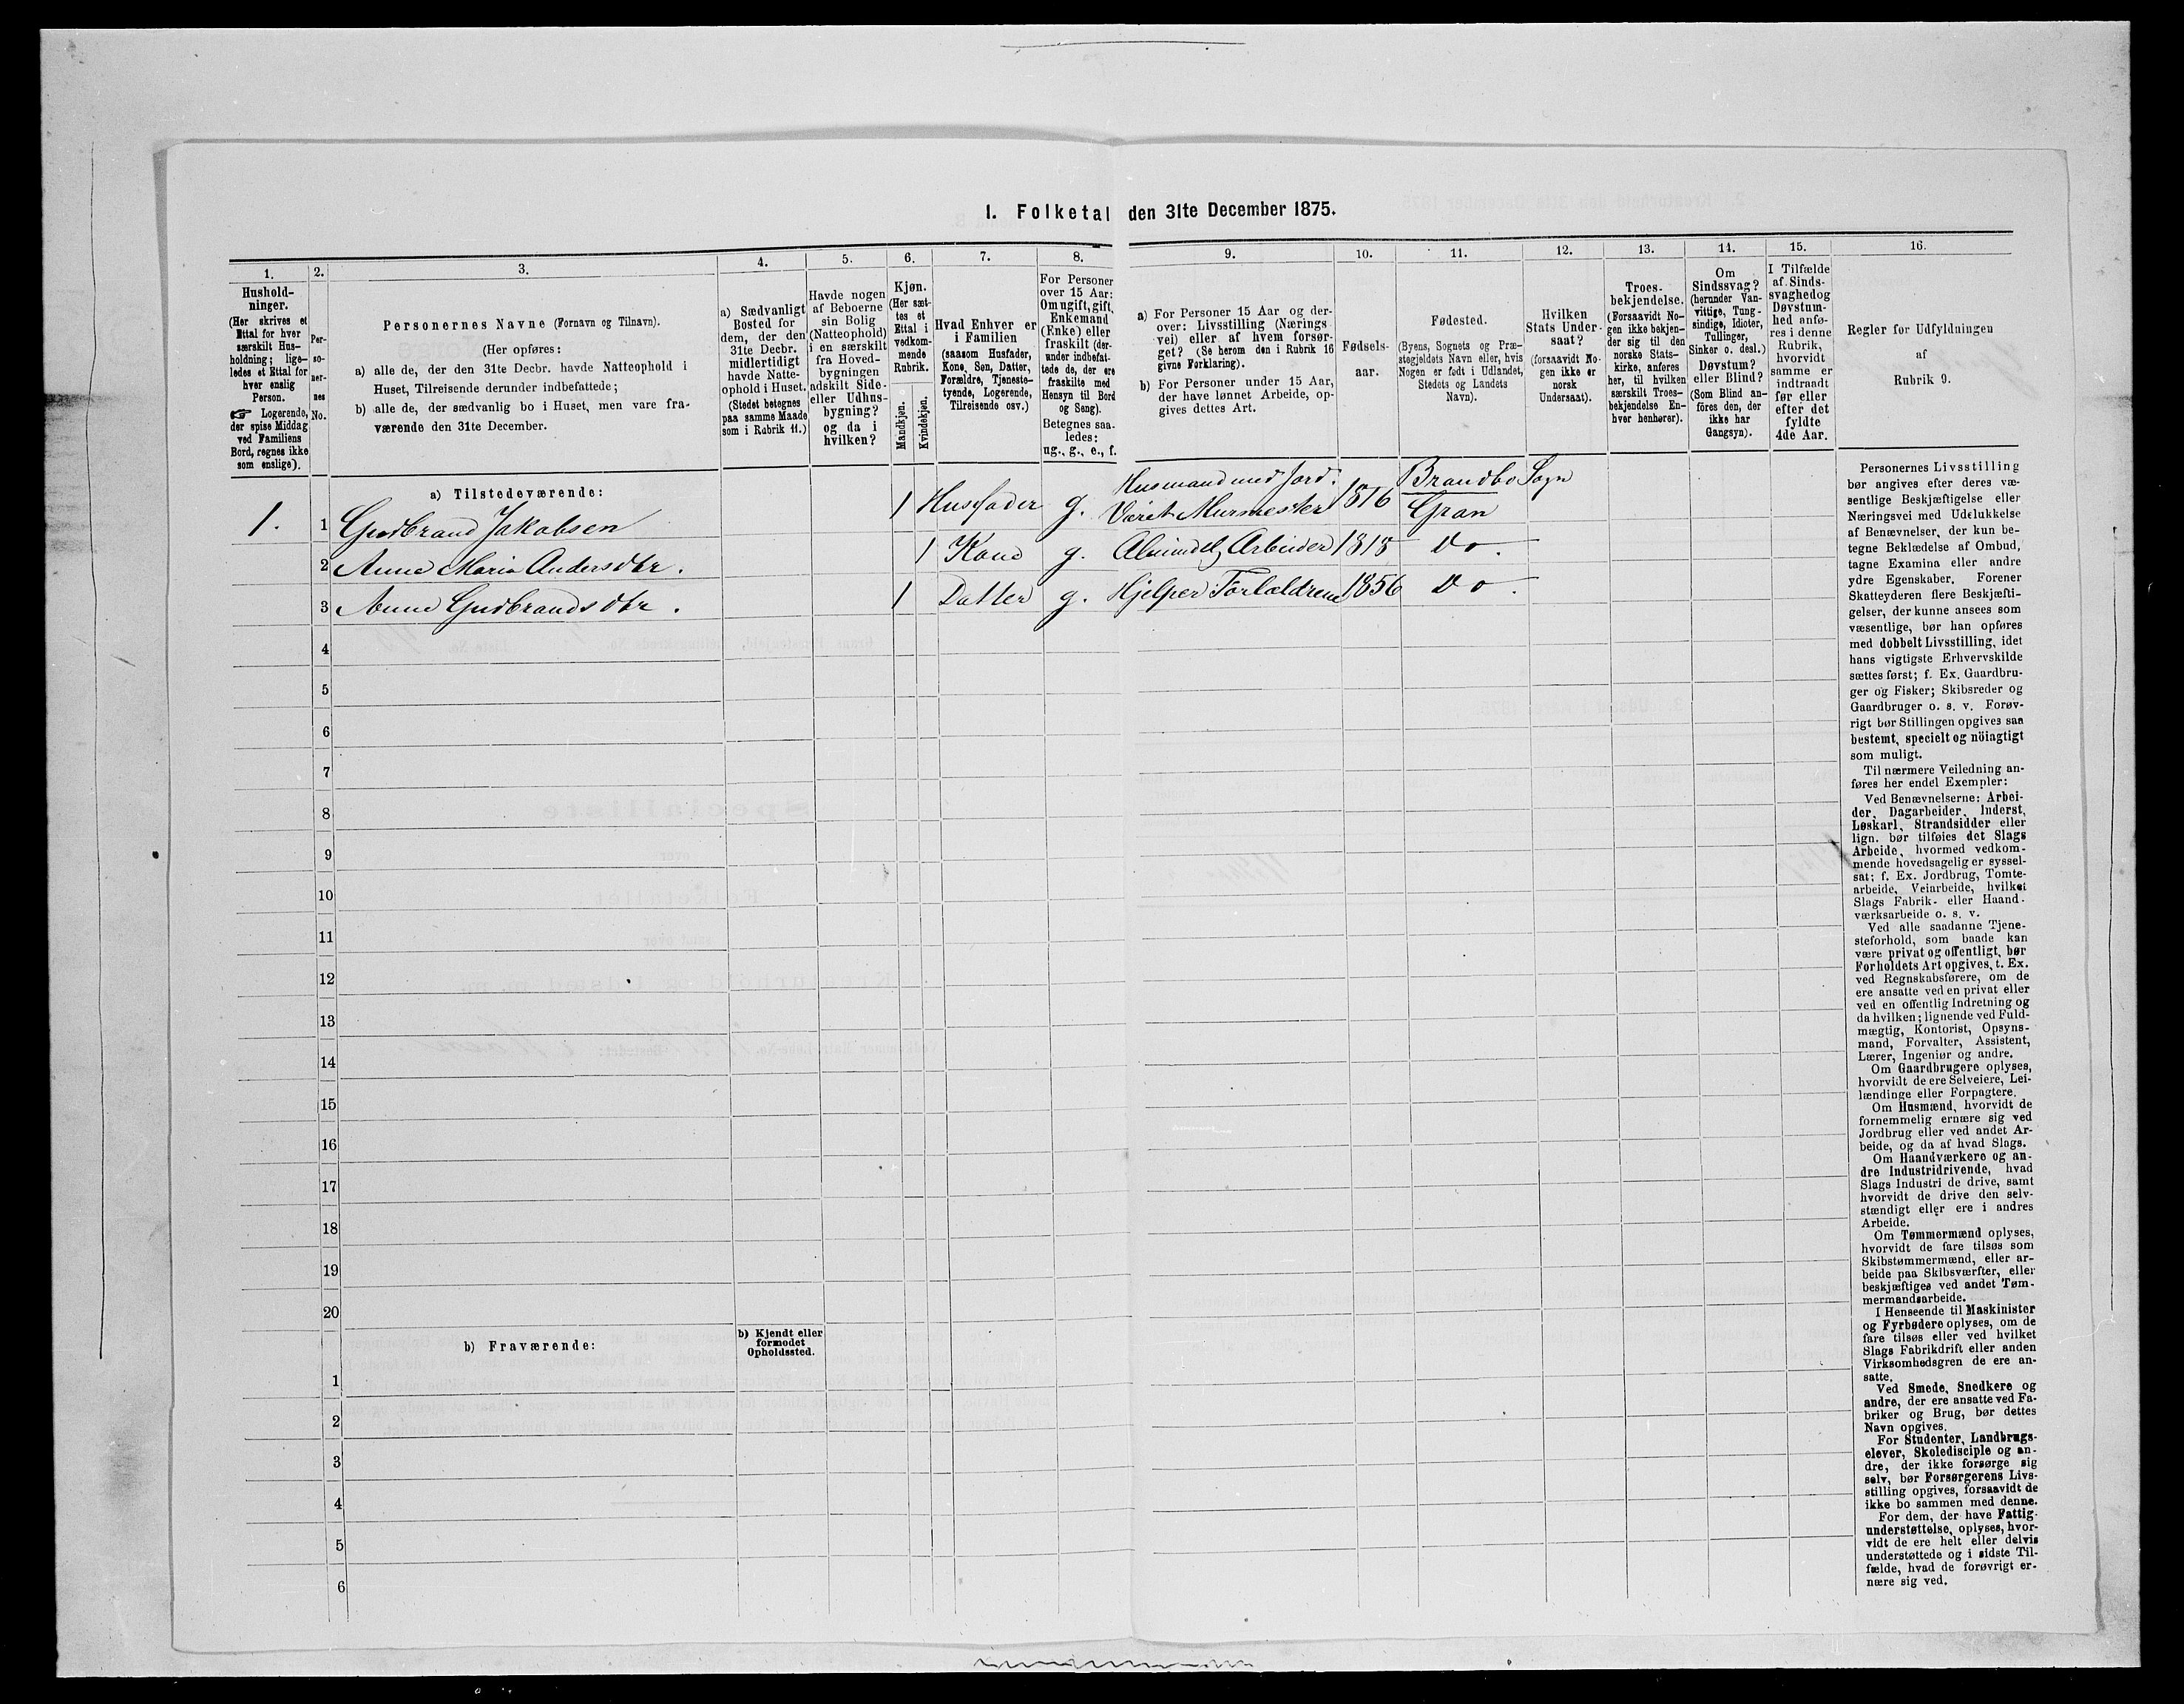 I. Folketal den 31te December 1875.
1.
2.
3.
4.
5.
6.
7.
8.
9.
10.
11.
12.
13.
14.
15.
16.
Hushold-
ninger.
(Her skrives et
Ettal for hver
særskilt Hus-
holdning; lige-
ledes et Ettal for
hver enslig
Person.
☞ Logerende,
der spise Middag
ved Familiens
Bord, regnes ikke
som enslige).
Per-
so-
ner-
nes
No.
Personernes Navne (Fornavn og Tilnavn).
(Her opføres:
a) alle de, der den 31te Decbr. havde Natteophold i
Huset, Tilreisende derunder indbefattede;
b) alle de, der sædvanlig bo i Huset, men vare fra-
værende den 31te December.
a) Sædvanligt
Bosted for
dem, der den
31te Decbr.
midlertidigt
havde Natte-
ophold i Huset.
(Stedet betegnes
paa samme Maade
som i Rubrik 11.)
Havde nogen
af Beboerne
sin Bolig
(Natteophold)
i en særskilt
fra Hoved-
bygningen
adskilt Side-
eller Udhus-
bygning?
og da i
hvilken?
Kjøn.
(Her sæt-
tes et
Ettal i
vedkom-
mende
Rubrik.
Mandkjøn.
Kvindekjøn.
Hvad Enhver er
i Familien
(saasom Husfader,
Kone, Søn, Datter,
Forældre, Tjeneste-
tyende, Logerende,
Tilreisende osv.)
For Personer
over 15 Aar:
Om ugift, gift,
Enkemand
(Enke) eller
fraskilt (der-
under indbefat-
tede de, der ere
fraskilte med
Hensyn til Bord
og Seng).
Betegnes saa-
ledes:
ug., g., e., f.
a) For Personer 15 Aar og der-
over: Livsstilling (Nærings
vei) eller af hvem forsør-
get? (Se herom den i Rubrik 16
givne Forklaring).
b) For Personer under 15 Aar,
der have lønnet Arbeide, op-
gives dettes Art.
Fødsels-
aar.
Fødested.
(Byens, Sognets og Præ-
stegjeldets Navn eller, hvis
Nogen er født i Udlandet,
Stedets og Landets
Navn).
Hvilken
Stats Under-
saat?
(forsaavidt No-
gen ikke er
norsk
Undersaat).
Troes-
bekjendelse.
(Forsaavidt No-
gen ikke bekjen-
der sig til den
norske Stats-
kirke, anføres
her, til hvilken
særskilt Troes-
bekjendelse En-
hver henhører).
Om
Sindssvag?
(herunder Van-
vittige, Tung-
sindige, Idioter,
Tullinger,
Sinker o. desl.)
Døvstum?
eller Blind?
(Som Blind an-
føres den, der
ikke har
Gangsyn).
I Tilfælde
af Sinds-
svaghed og
Døvstum-
hed anfø-
res i denne
Rubrik,
hvorvidt
samme er
indtraadt
før eller
efter det
fyldte
4de Aar.
Regler for Udfyldningen
af
Rubrik 9.
a) Tilstedeværende:
1. 1 Gudbrand Jakobsen 1 Husfader g. Husmand med Jord. Murmester 1816 Brandbo Sogn Gran
2 Anne Maria Andersdtr. 1 Kone g. Almindelig Arbeider 1818 Do.
3 Anne Gudbrandsdtr. 1 Datter g. Hjelper Forældrene 1856 Do.
4
5
6
7
8
9
10
11
12
13
14
15
16
17
18
19
20
b) Fraværende:
b) Kjendt eller
formodet
Opholdssted.
1
2
3
4
5
6
Personernes Livsstilling
bør angives efter deres væ-
sentlige Beskjæftigelse eller
Næringsvei med Udelukkelse
af Benævnelser, der kun be-
tegne Beklædelse af Ombud,
tagne Examina eller andre
ydre Egenskaber. Forener
Skatteyderen flere Beskjæfti-
gelser, der kunne ansees som
væsentlige, bør han opføres
med dobbelt Livsstilling, idet
hans vigtigste Erhvervskilde
sættes først; f. Ex. Gaardbru-
ger og Fisker; Skibsreder og
Gaardbruger o. s. v. Forøv-
rigt bør Stillingen opgives saa
bestemt, specielt og nöiagtigt
som muligt.
Til nærmere Veiledning an-
føres her endel Exempler:
Ved Benævnelserne: Arbei-
der, Dagarbeider, Inderst,
Løskarl, Strandsidder eller
lign. bør tilføies det Slags
Arbeide, hvormed vedkom-
mende hovedsagelig er syssel-
sat; f. Ex. Jordbrug, Tomte-
arbeide, Veiarbeide, hvilket
Slags Fabrik- eller Haand-
værksarbeide o. s. v.
Ved alle saadanne Tjene-
steforhold, som baade kan
være privat og offentligt, bør
Forholdets Art opgives, t. Ex.
ved Regnskabsførere, om de
ere ansatte ved en privat eller
ved en offentlig Indretning og
da hvilken; lignende ved Fuld-
mægtig, Kontorist, Opsyns-
mand, Forvalter, Assistent,
Lærer, Ingeniør og andre.
Om Gaardbrugere oplyses,
hvorvidt de ere Selveiere, Lei-
lændinge eller Forpagtere.
Om Husmænd, hvorvidt de
fornemmelig ernære sig ved
Jordbrug eller ved andet Ar-
beide, og da af hvad Slags.
Om Haandværkere og an-
dre Industridrivende, hvad
Slags Industri de drive, samt
hvorvidt de drive den selv-
stændigt eller ere i andres
Arbeide.
Om Tømmermænd oplyses,
hvorvidt de fare tilsøs som
Skibstømmermænd, eller ar-
beide paa Skibsværfter, eller
beskjæftiges ved andet Tøm-
mermandsarbeide.
I Henseende til Maskinister
og Fyrbødere oplyses, om de
fare tilsøs eller ved hvilket
Slags Fabrikdrift eller anden
Virksomhedsgren de ere an-
satte.
Ved Smede, Snedkere og
andre, der ere ansatte ved Fa-
briker og Brug, bør dettes
Navn opgives.
For Studenter, Landbrugs-
elever, Skoledisciple og an-
dre, der ikke forsørge sig
selv, bør Forsørgerens Livs-
stilling opgives, forsaavidt de
ikke bo sammen med denne.
For dem, der have Fattig-
understøttelse, oplyses, hvor-
vidt de ere helt eller delvis
understøttede og i sidste Til-
fælde, hvad de forøvrigt er-
nære sig ved.